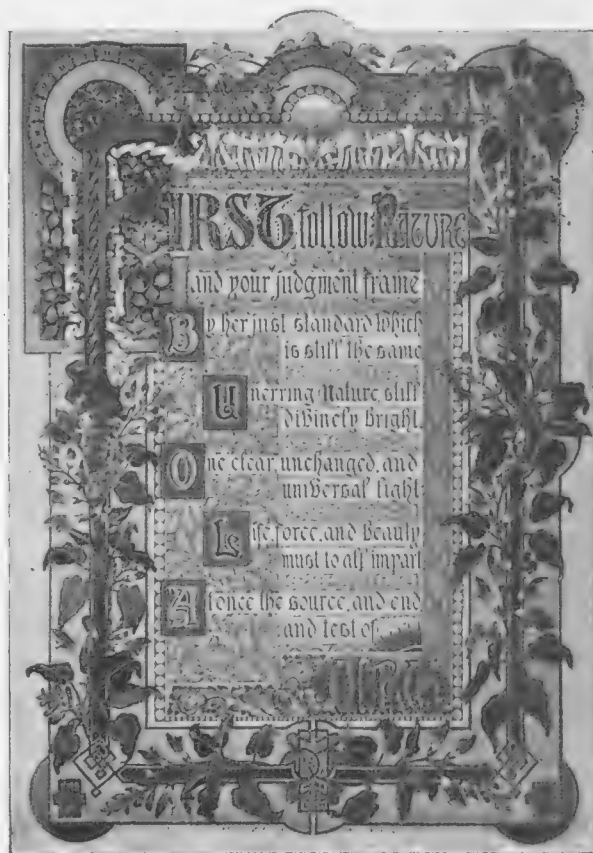 FIRST follow NATURE
and your judgment frame
By her just standard which
is still the same
Unerring Nature, still
divinely bright,
One clear, unchanged, and
universal light
Life, force, and Beauty
must to all impart
At once the source, and end,
and test of